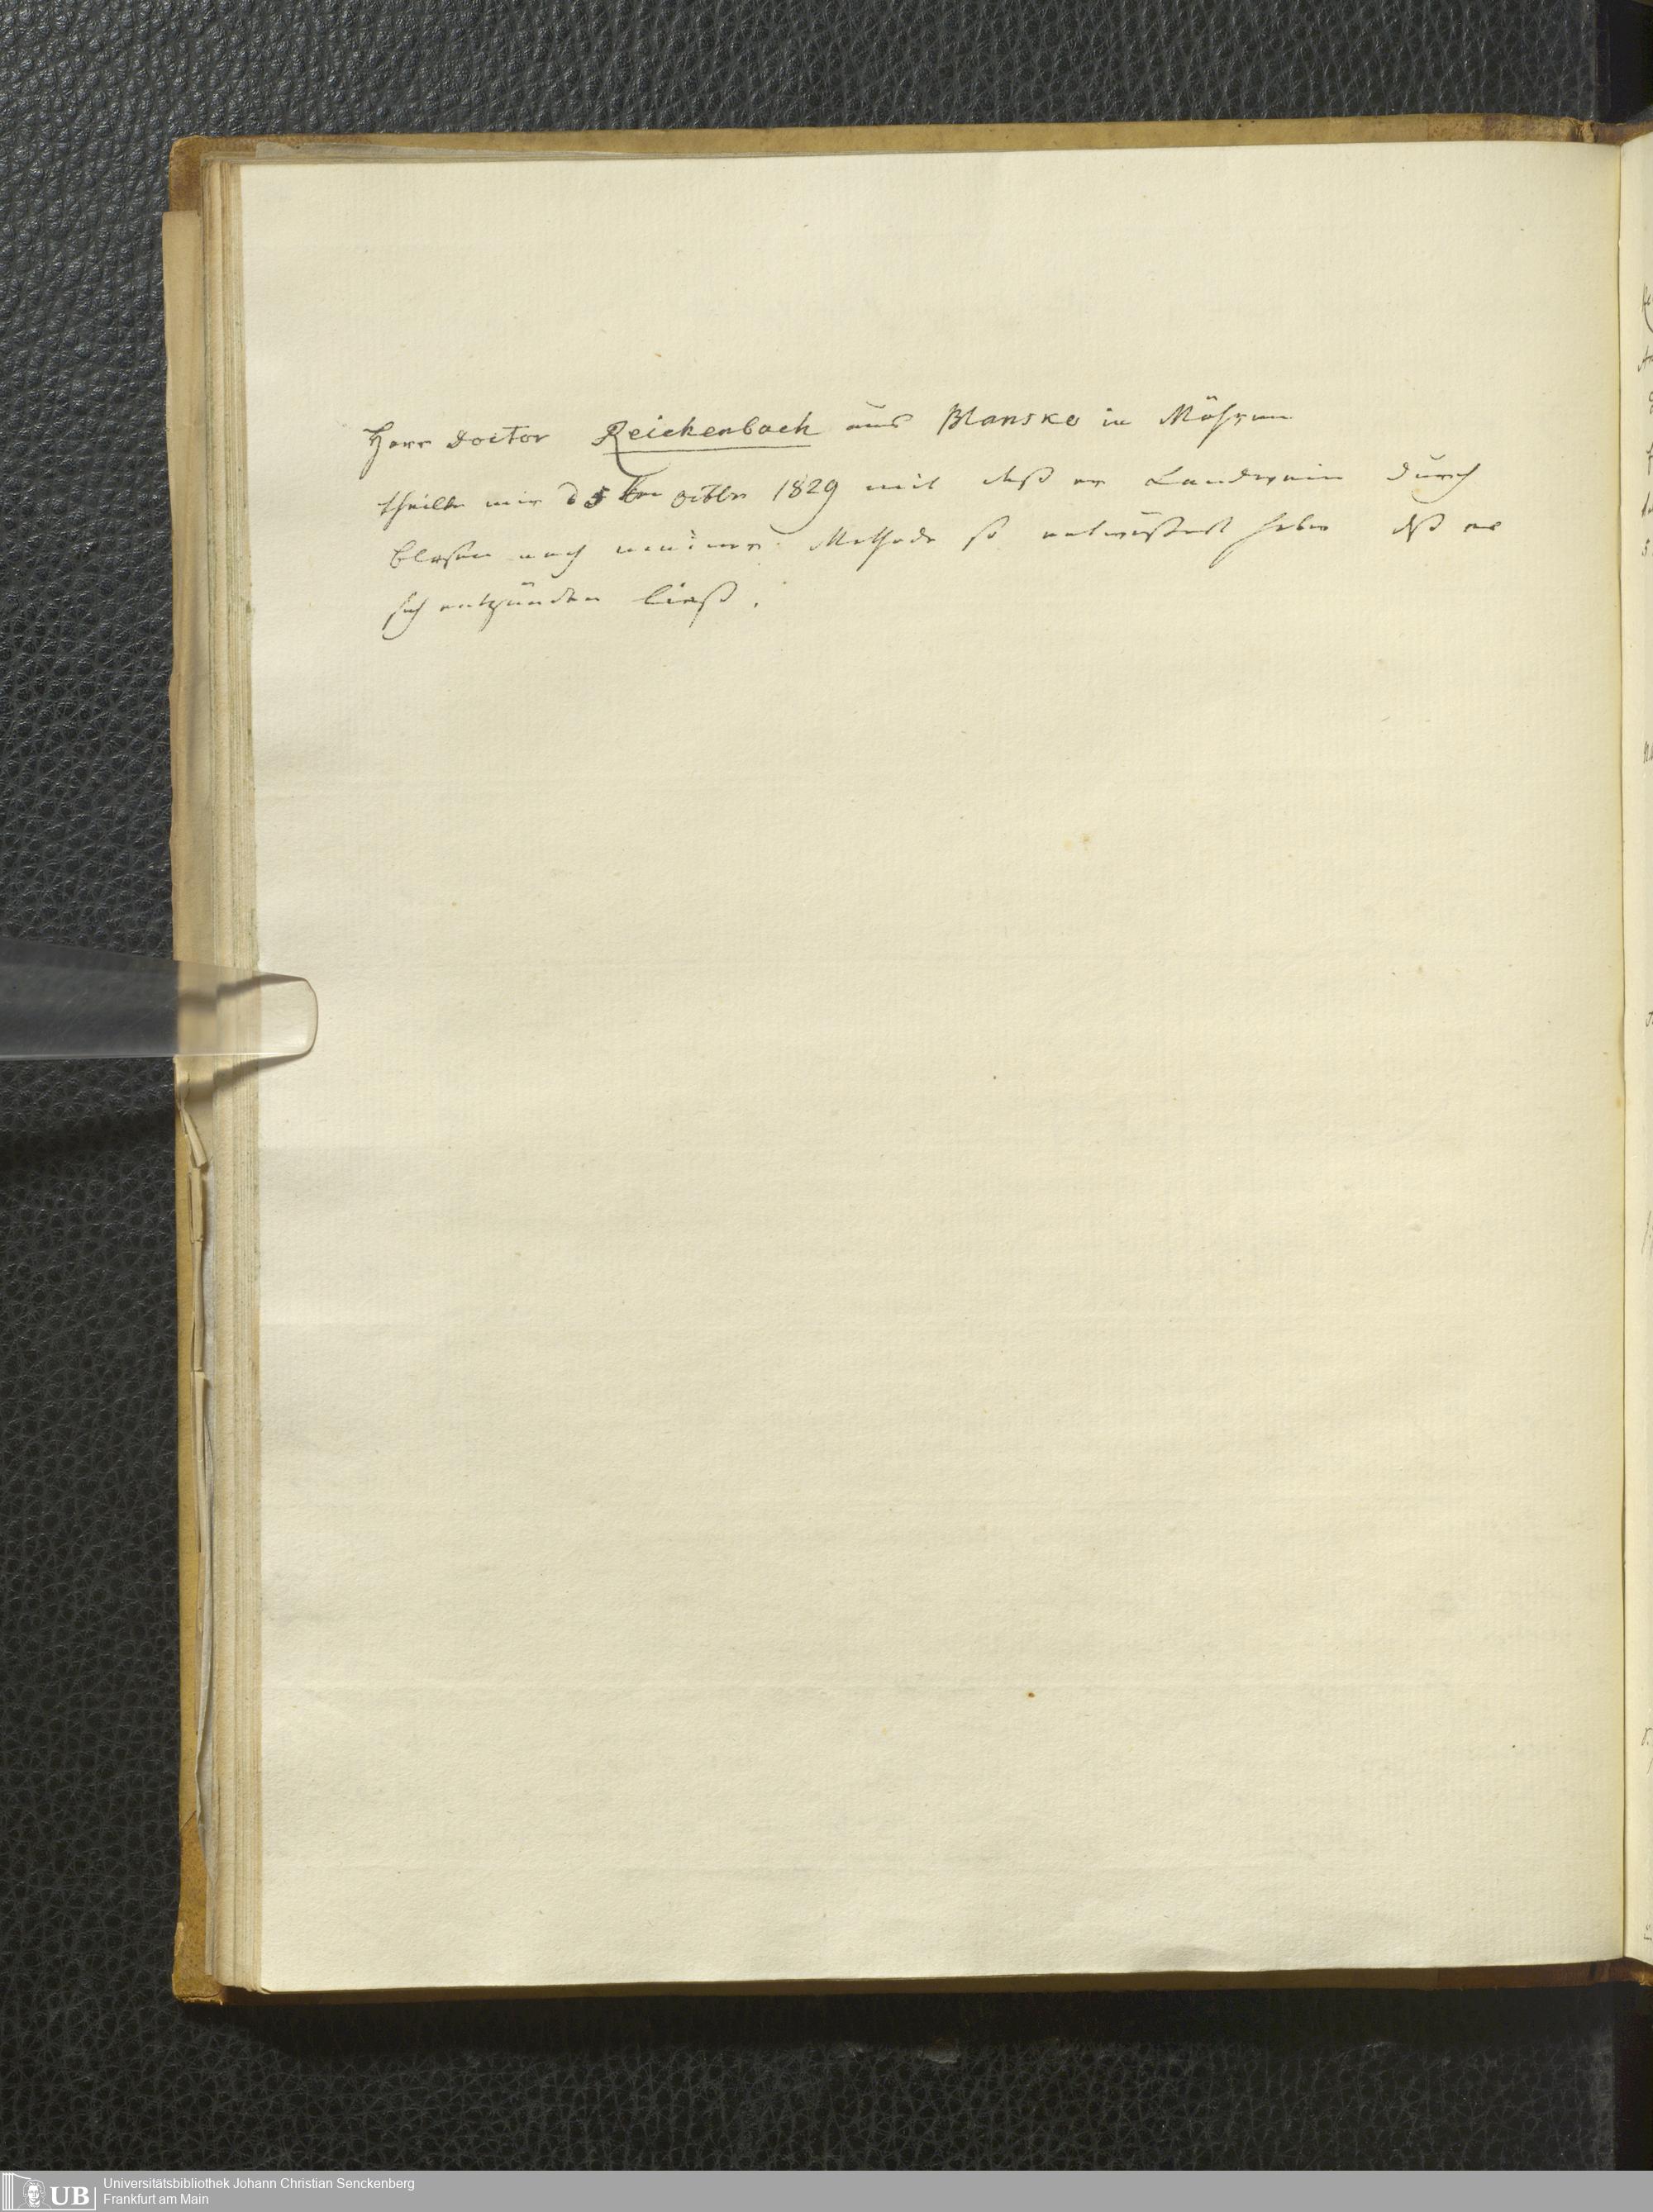 Herr Doctor Reichenbach aus Blansko in Mähren
theilte mir d 5 ten octbr 1829 mit daß er Landwein durch
blasen nach meiner Methode so entwäßert habe daß er
sich entzünden ließ.
UB
Universitätsbibliothek Johann Christian Senckenberg
Frankfurt am Main